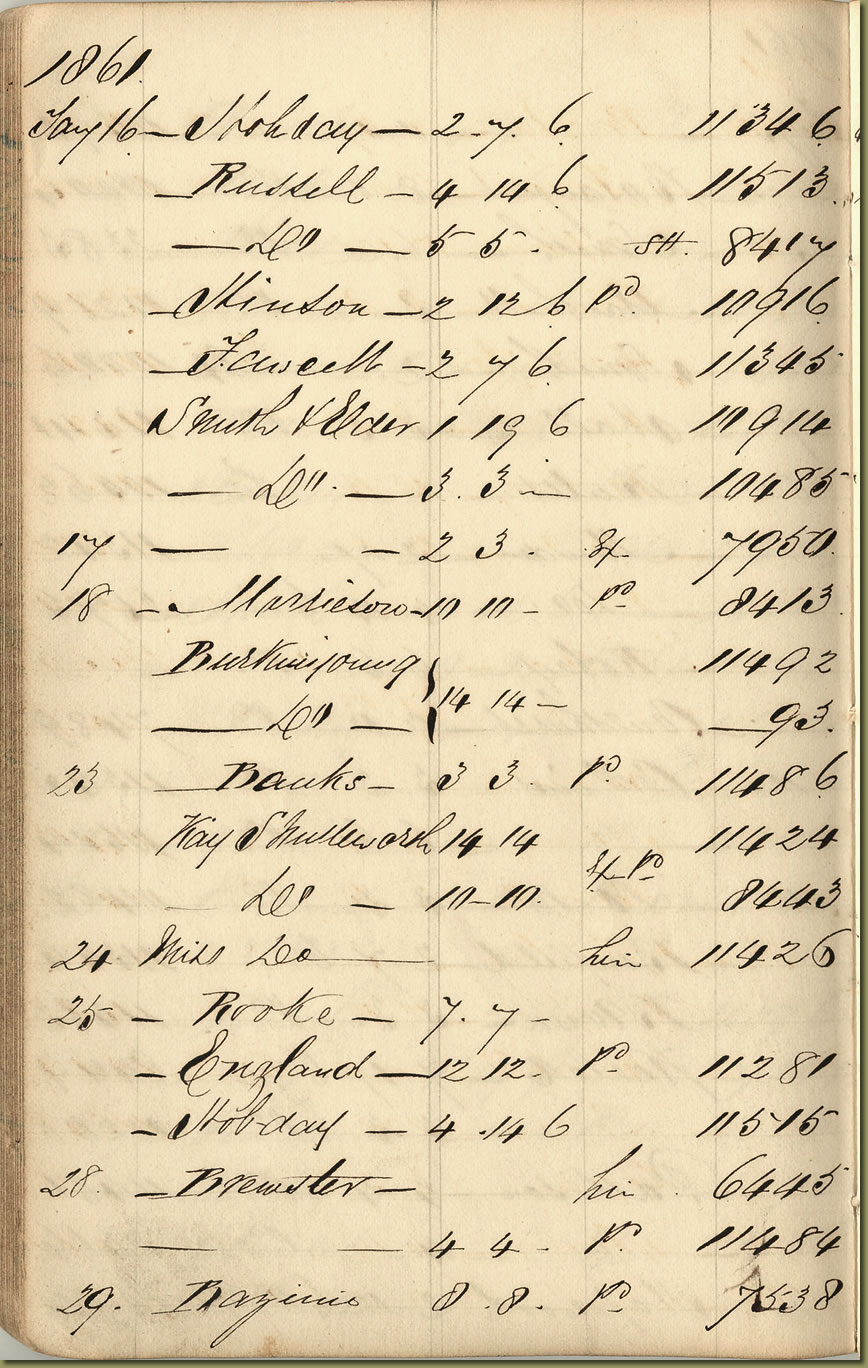 1861.
Jany 16 — Hobday — 2 - 7. 6 11346
— Russell — 4 14 6 11513.
— Do — 5 5. SH. 8417
— Hinson — 2 12 6 Pd. 10916
— Fawcett — 2 7 6 11345
Smith & Elder 1 19 6 10914
— Do. — 3. 3 — 10485
17 — — 2 3. 7950.
18 — 10 10 — Pd 8413
Burkinyoung 11492
— Do — } 14 14 — — 93.
23 — Banks — 3 3. Pd. 11486
Kay Shuttleworth 14 14 11424
— Do — 10 — 10. Pd 8443
24 Miss Do — hire 11426
25 — Rooke — 7. 7 —
— England — 12 12. Pd. 11281
— Hobday — 4 . 14 6 11515
28. — Brewster — hire . 6445
— — 4 4 - Pd. 11484
29. Bazinie 8 . 8 . Pd. 7538